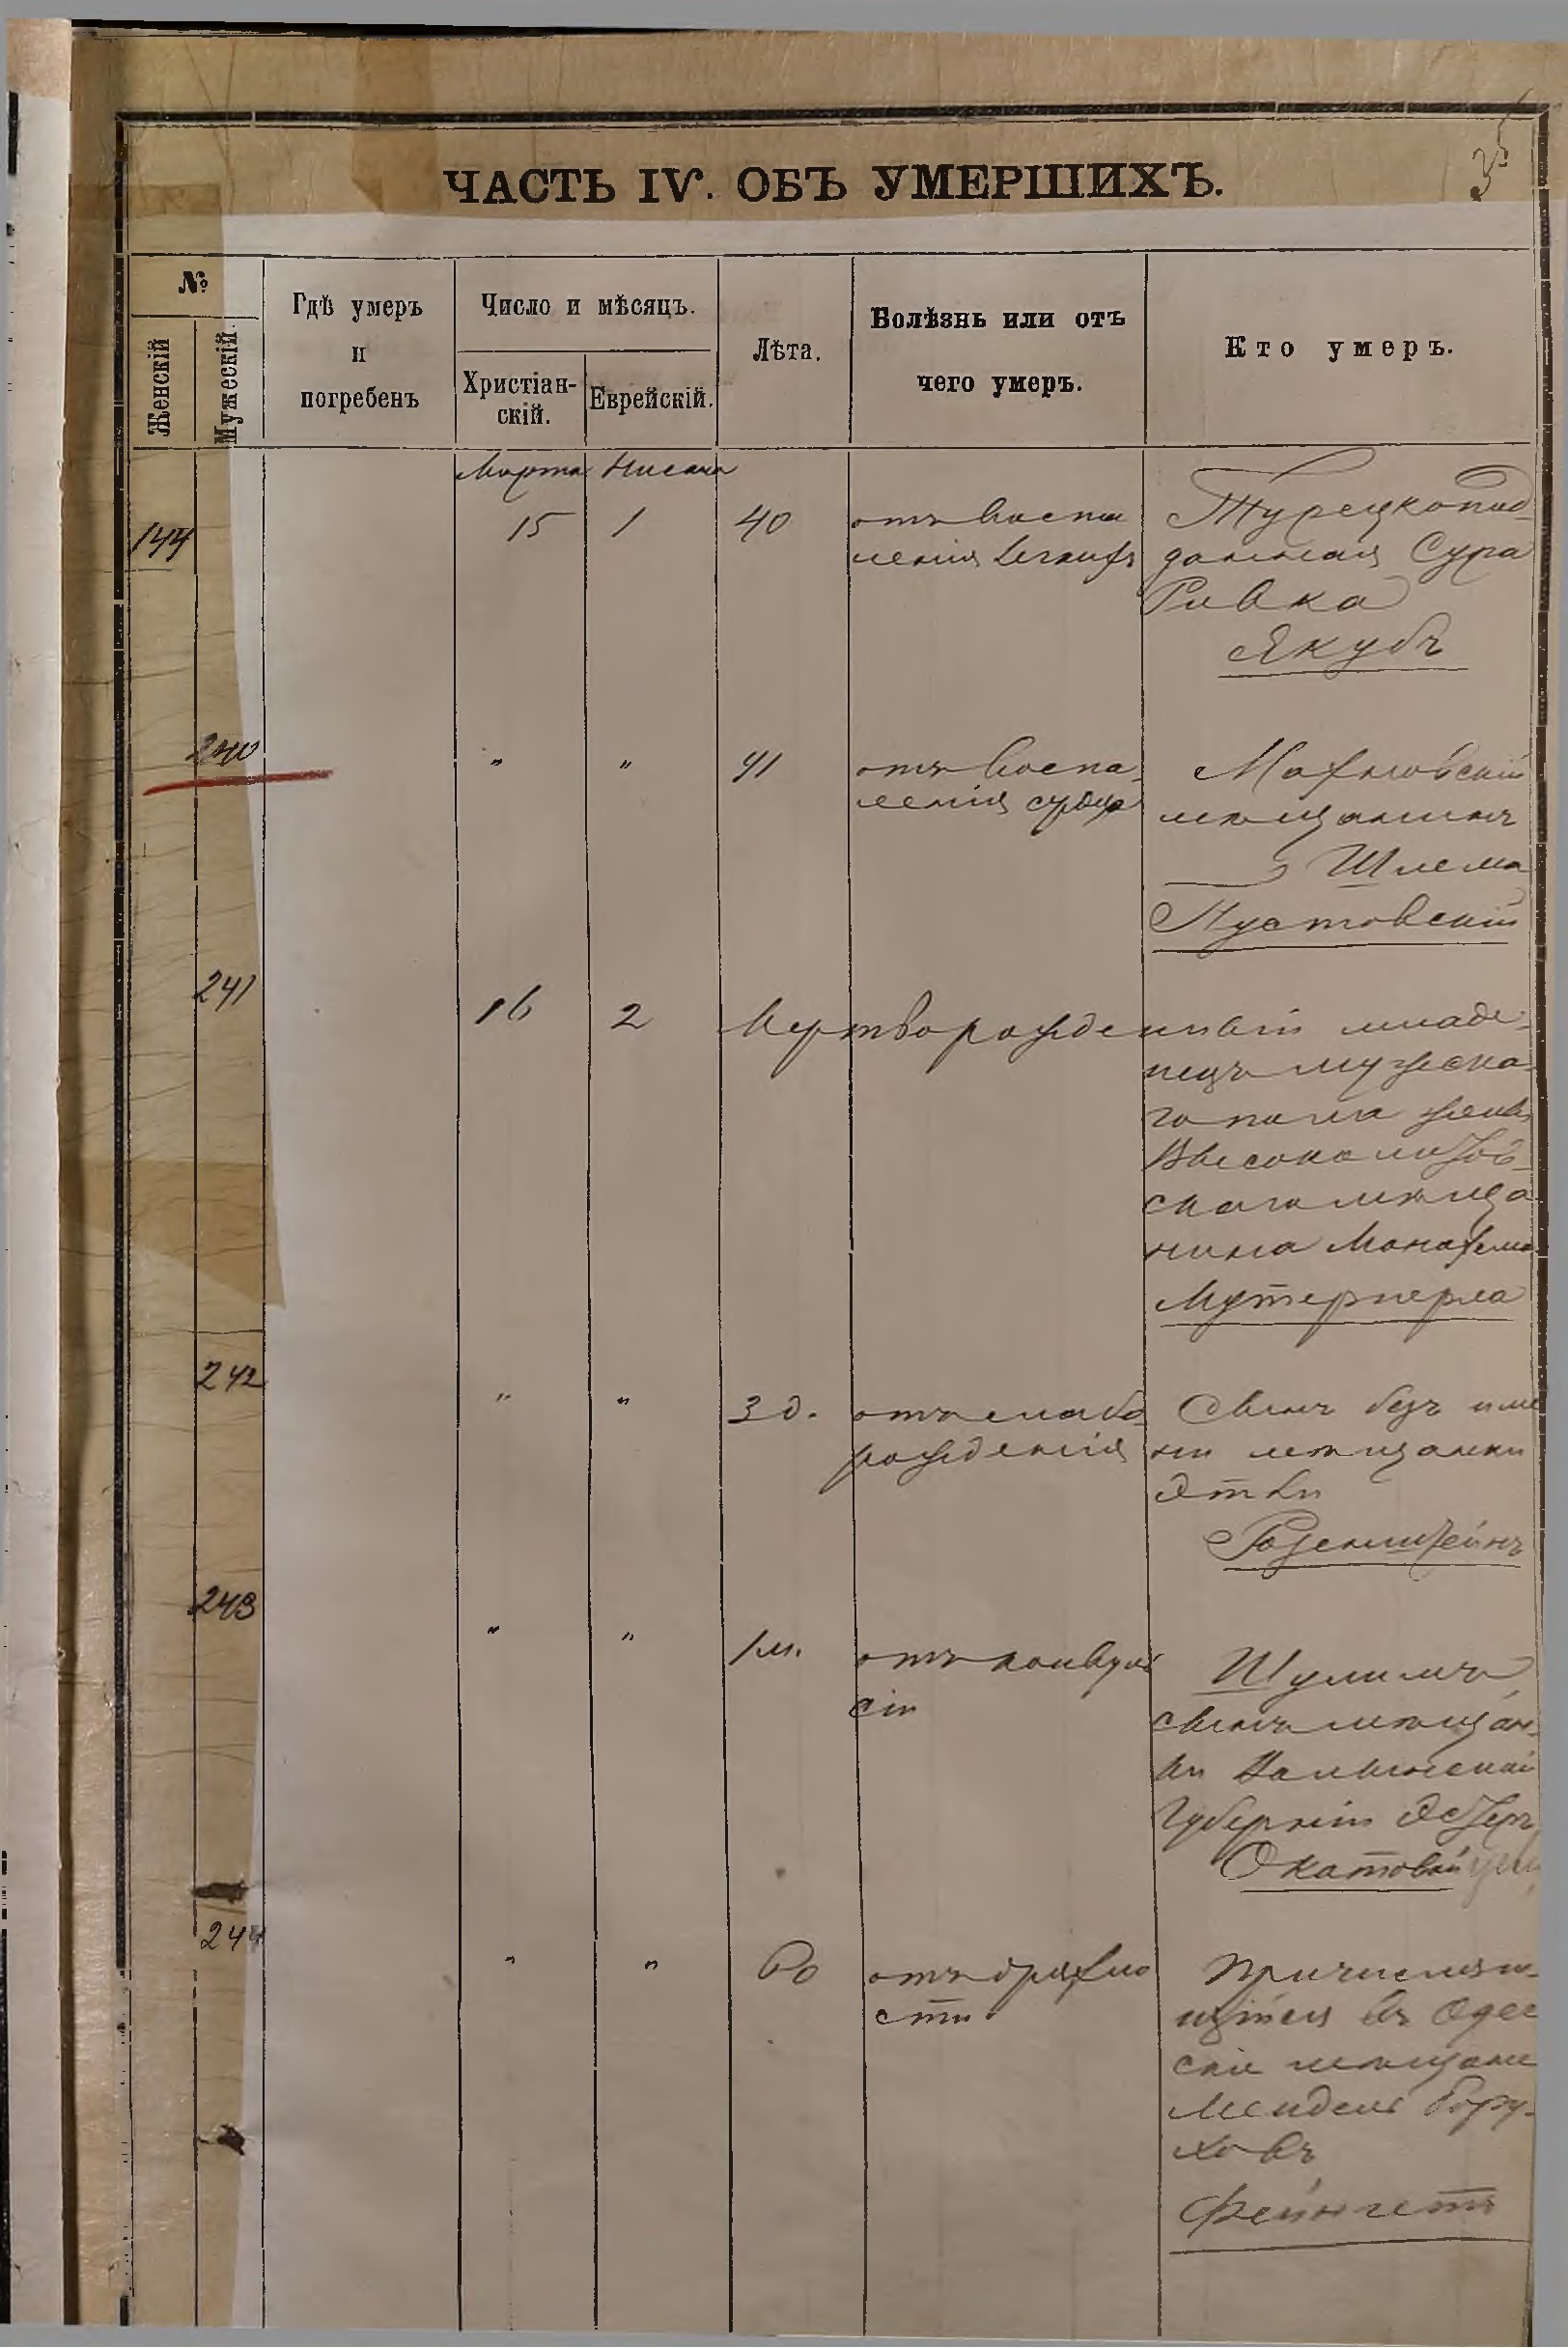 35
ЧАСТЬ IV. ОБЪ УМЕРШИХЪ.
№
Женскій
Мужескій.
Гдѣ умеръ
и
погребенъ
Число и мѣсяцъ.
Христіан-
скій.
Еврейскій.
Лѣта.
Болѣзнь или отъ
чего умеръ.
Кто умеръ.
Марта Нисана
144 15 1 40 отъ воспа
ленія легкихъ
Турецкопод-
данная Сура
Ривка
Якубъ
240 " " 41 отъ воспа-
ленія сердца
Махновскій
мѣщанинъ
Шлема
Пустовскій
241 16 2 Мертворожденный младе-
нецъ мужеска-
го пола жены
Высоко
скаго мѣща
нина Монахема
Мутерперла
242 " " 3 д. отъ слабо
рожденія
Сынъ безъ име
ни мѣщанки
Этки
Розенштейнъ
243 " " 1 м. отъ конвуль
сіи
Шулимъ
сынъ мѣщан-
ки Волынской
губерніи Эстеръ
Окатовой
244 " " 60 отъ дряхло
сти
Причисляю-
щійся въ Одес
скіе мѣщане
Мендель Бору-
ховъ